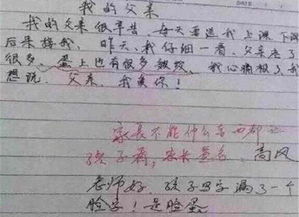 我的父亲
我的父亲很辛苦，每天要送我上课，下课
后来接我。昨天，我仔细一看，父亲老了
很多，蛋上也有很多皱纹，我心痛极了，我
想说，父亲，我爱你！
家长不能什么字也都让
孩子看，家长签名：高风
老师好，孩子写字漏了一个
脸字！是脸蛋